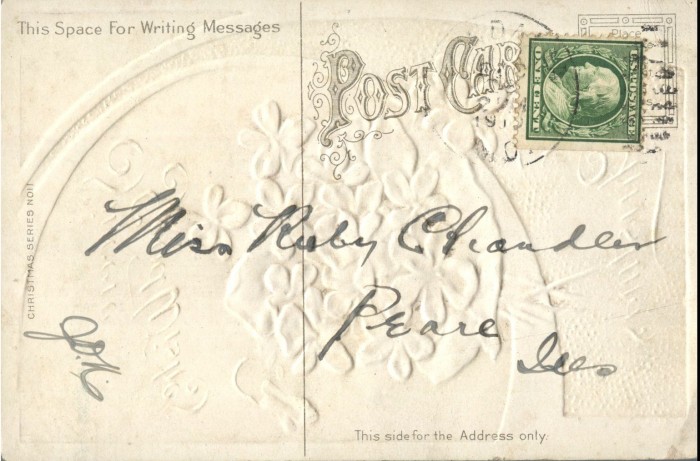 This Space For Writing Messages
POST CAR
Place
U.S. POSTAGE
ONE CENT
CHRISTMAS SERIES NO11
Miss Ruby Chandler
Pearl
Ills
This side for the Address only.